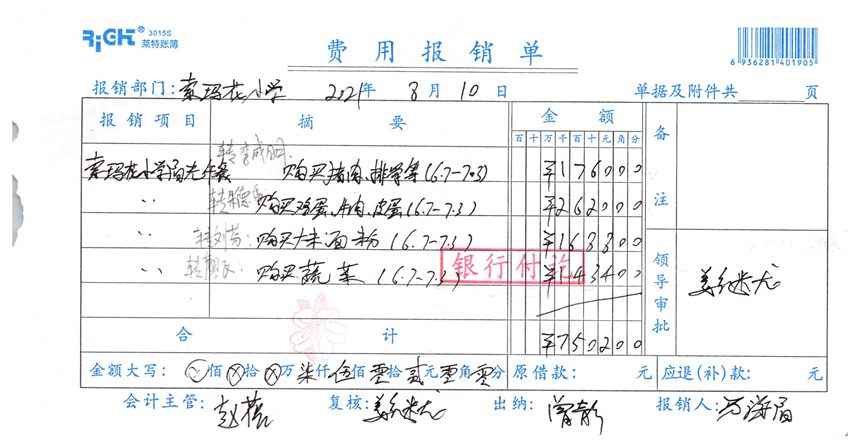 RiGHT 3015S 莱特账簿
费用报销单
6 936281 401905
报销部门: 索玛花小学 2021年 8月10日 单据及附件共 页
报销项目 摘要 金额 备注
百十万千百十元角分
转李成明
索玛花小学 午餐 购买猪肉、排骨等(6.7-7.3) ¥176000
购买鸡蛋、牛肉、皮蛋(6.7-7.3) ¥262000
转刘芬: 购买大米面粉(6.7-7.3) ¥168800
购买蔬菜(6.7-7.3) ¥143400
银行付讫
领导审批
合计 ¥750200
金额大写: 佰 拾 万 柒仟 伍佰 零拾 贰元 零角 零分 原借款: 元 应退(补)款: 元
会计主管: 复核: 出纳: 报销人: